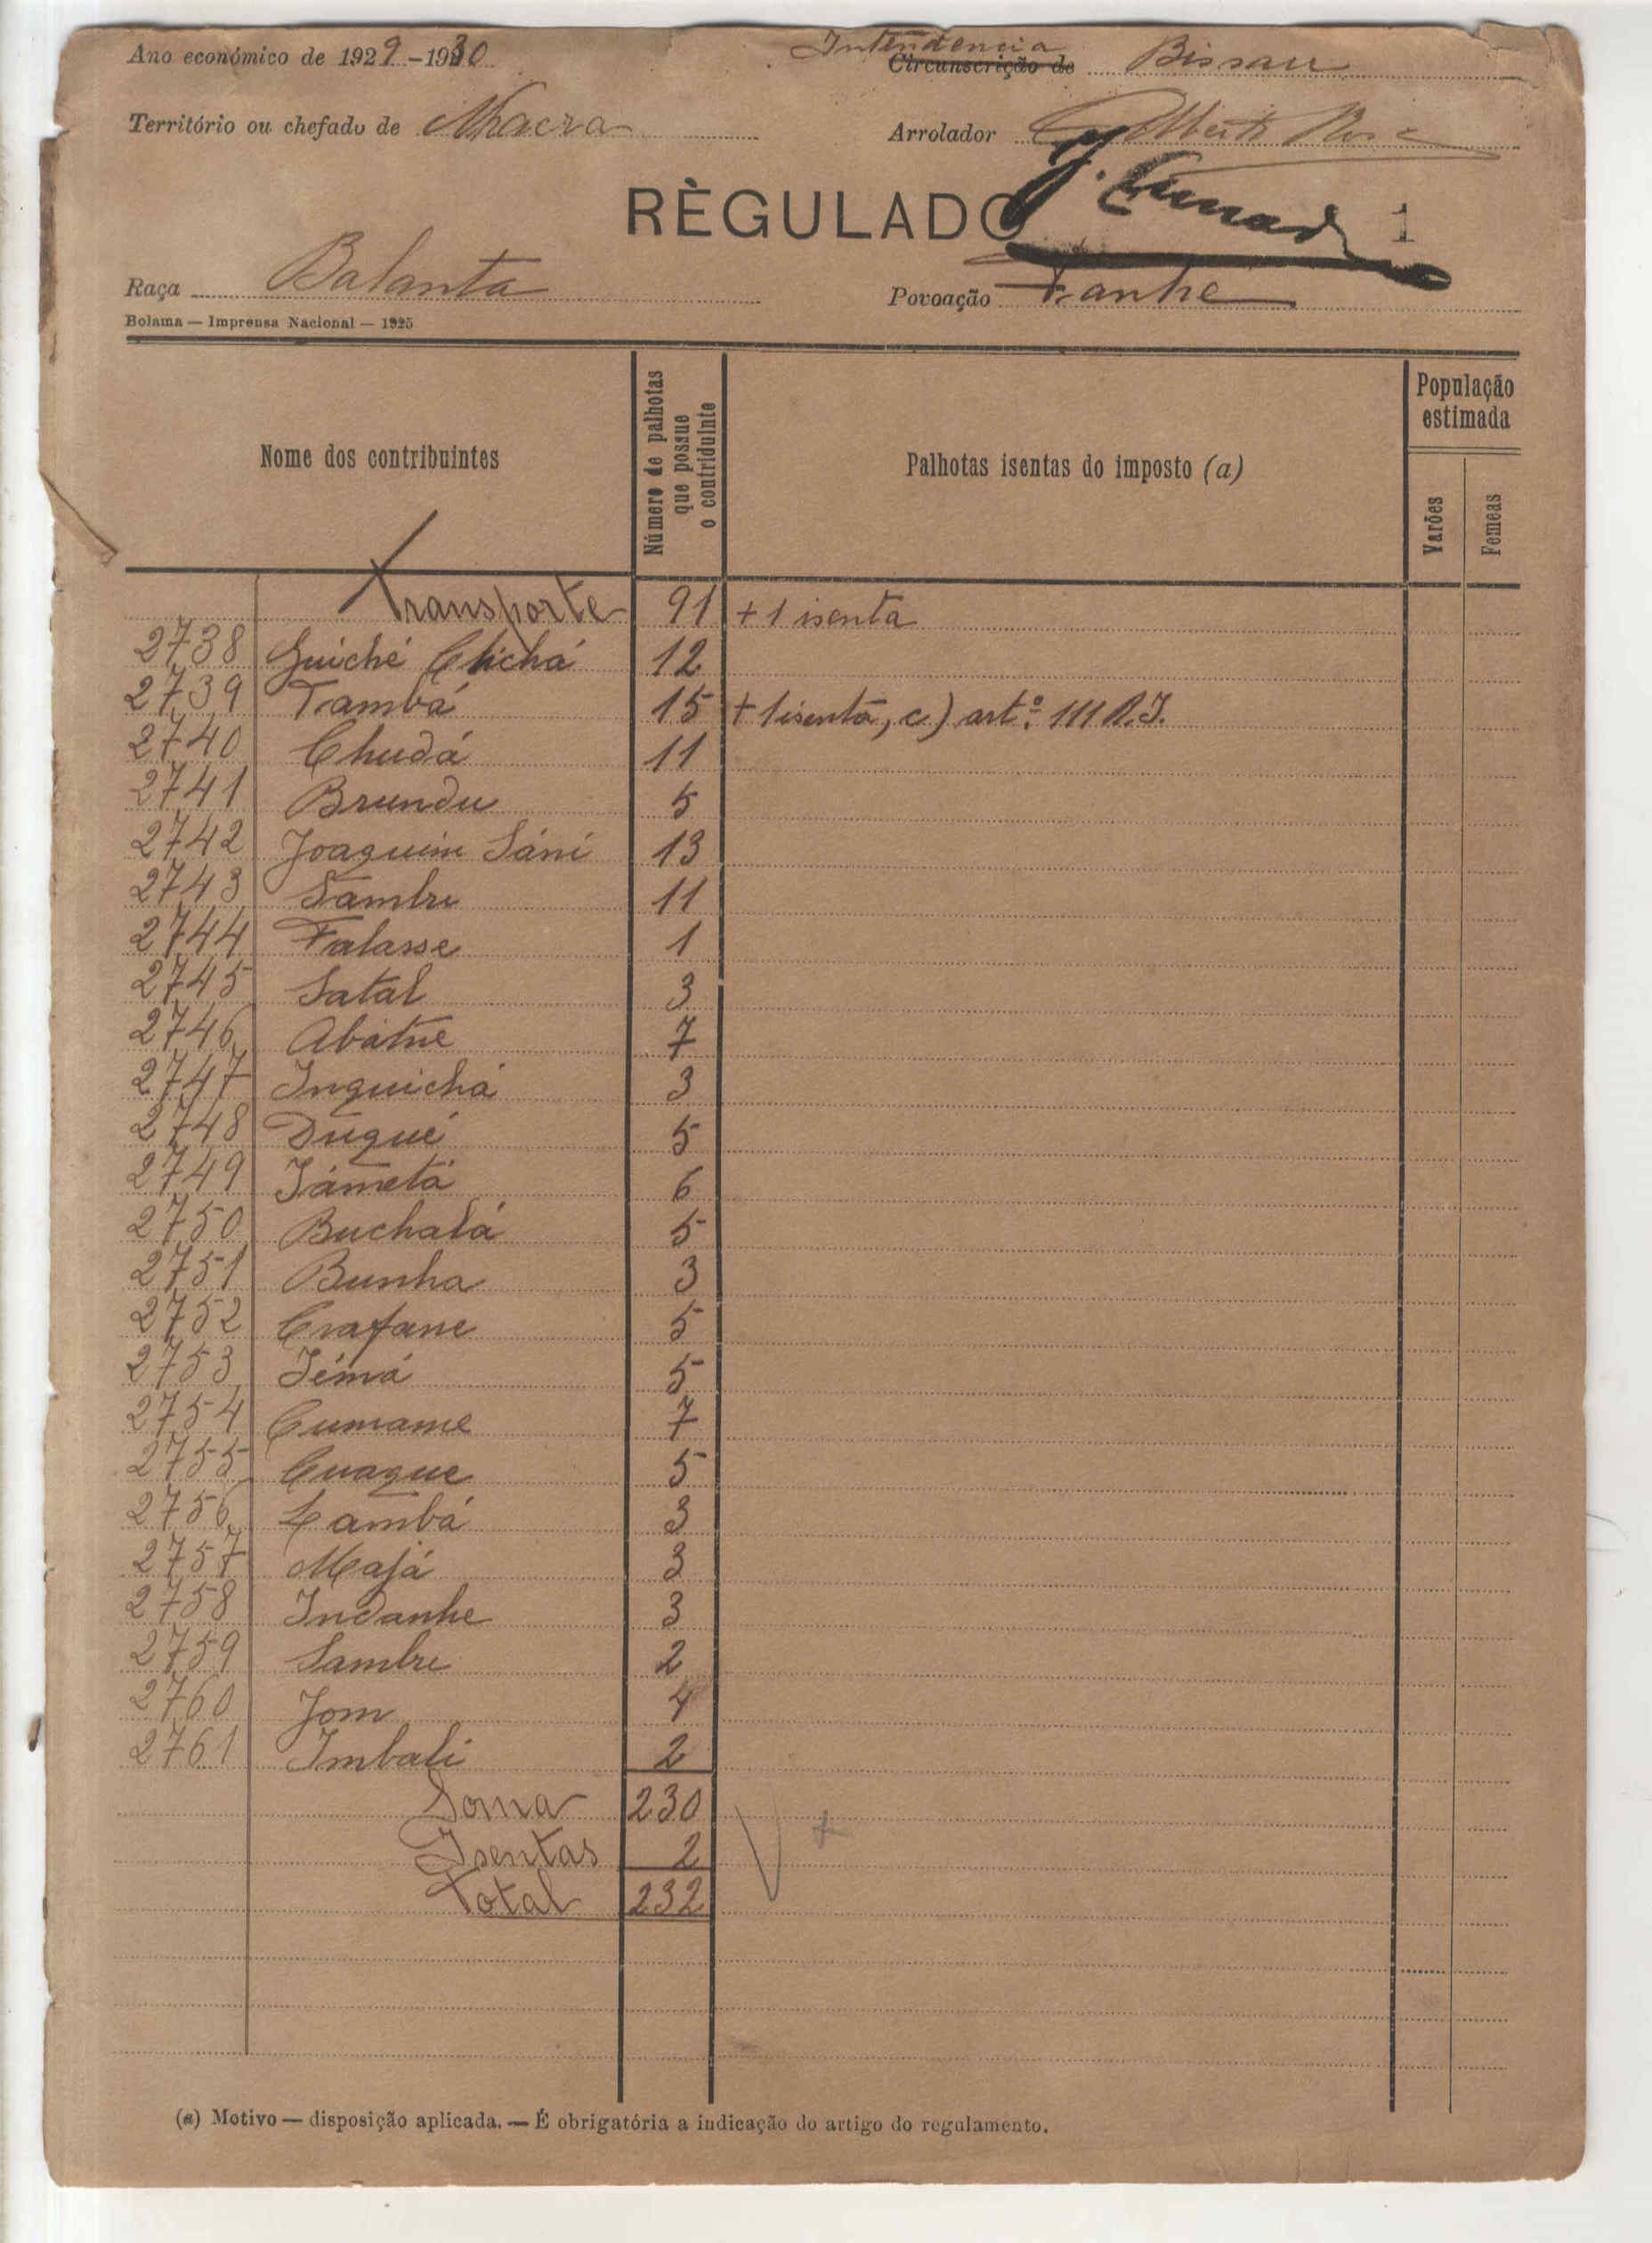 Ano económico de 1929-1930
Intendencia
Circunscrição de Bissau
Território ou chefado de Nhacra
Arrolador
RÈGULADO
1
Raça Balanta
Povoação Fanhe
Bolama — Imprensa Nacional — 1925
Nome dos contribuintes
Número de palhotas que possue o contriduinte
Palhotas isentas do imposto (a)
População estimada
Varões
Femeas
Transporte 91 + 1 isenta
2738 Guiché Chichá 12
2739 Tambá 15 + 1 isenta, c) artº. 111 R.I.
2740 Chudá 11
2741 Brundu 5
2742 Joaquim Sáni 13
2743 Sambu 11
2744 Falasse 1
2745 Satal 3
2746 Abatne 7
2747 Inquichá 3
2748 Duqué 5
2749 Iámetá 6
2750 Buchalá 5
2751 Bunha 3
2752 Crafane 5
2753 Iémá 5
2754 Cumame 7
2755 Cuaque 5
2756 Lambá 3
2757 Majá 3
2758 Indanhe 3
2759 Sambu 2
2760 Jom 4
2761 Imbali 2
Soma 230
Isentas 2
Total 232
(a) Motivo — disposição aplicada. — É obrigatória a indicação do artigo do regulamento.